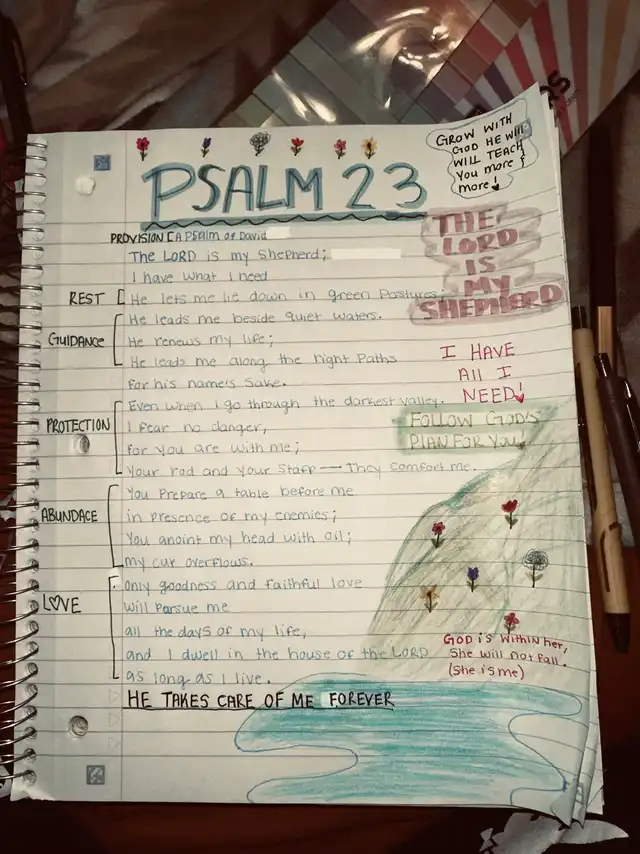 GROW WITH
GOD HE WILL
WILL TEACH
YOU more &
more!
PSALM 23
PROVISION [A Psalm of David
The LORD is my Shepherd;
I have what I need
REST [He lets me lie down in green Pastures;
He leads me beside quiet waters.
GUIDANCE He renews my life;
He leads me along the right Paths
for his name's Sake.
Even when I go through the darkest valley.
PROTECTION I fear no danger,
for you are with me;
Your rod and your Staff — They comfort me.
You Prepare a table before me
ABUNDACE in presence of my enemies;
You anoint my head with oil;
my cup overflows.
only goodness and faithful love
LOVE will Pursue me
all the days of my life,
and I dwell in the house of the LORD
as long as I live.
HE TAKES CARE OF ME FOREVER
THE
LORD
IS
MY
SHEPHERD
I HAVE
ALL I
NEED!
FOLLOW GOD'S
PLAN FOR YOU!
GOD is within her,
She will not fall.
(She is me)